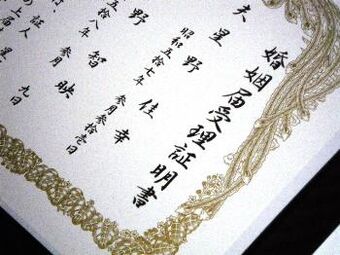 婚姻届受理証明書
夫 星野 佳幸
昭和五拾七年 参月参拾壱日
野 智映
五拾八年 参月
証人
九日